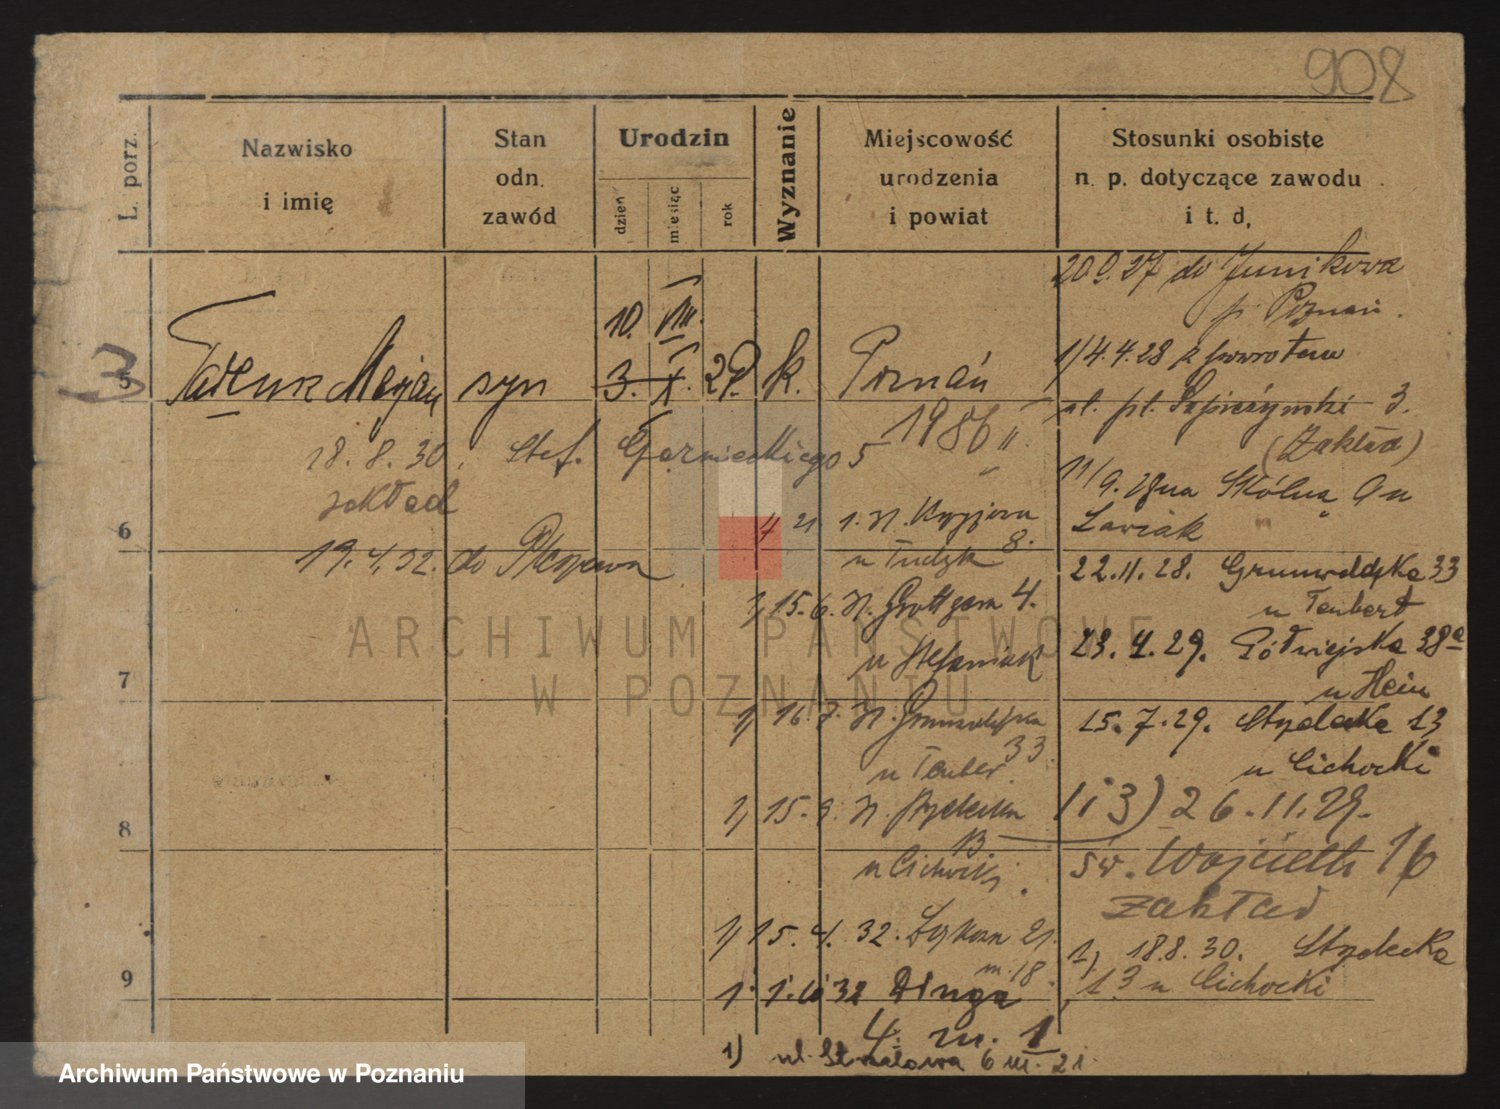 908
L. porz.
Nazwisko
i imię
Stan
odn.
zawód
Urodzin
dzień
miesiąc
rok
Wyznanie
Miejscowość
urodzenia
i powiat
Stosunki osobiste
n. p. dotyczące zawodu
i t. d,
20.9.27 do Junikowa
p. Poznań.
10. VIII.
5 Marjan syn 3. X. 29. k. Poznań
1) 4.4.28 z powrotem
3.
(Zakład)
1986
18.8.30. Stef. Czarnieckiego 5
zakład
11/9. 28 na Skólną
Ławiak
6
4 21 1. N.
8.
19.4.32. do Pleszewa
22.11.28. Grunwaldzka 33
u Teubert
1) 15.6. N. Grottgera 4.
u Stefaniak
23.4.29. Półwiejska 38a
u Hein
7
1) 16.7. N. Grunwaldzka
33.
u Teuber
15.7.29. Strzelecka 13
u Cichocki
8
1) 15.9. N. Strzelecka
13
u Cichocki.
1 i 3) 26.11.29.
św. Wojciech 16
zakład
1) 15.4.32. 21.
m. 18.
1) 18.8.30. Strzelecka
13 u Cichocki
9
1. 1.10 32 Długa
4. m. 1
1) ul. 6 m. 21.
ARCHIWUM PAŃSTWOWE
W POZNANIU
Archiwum Państwowe w Poznaniu